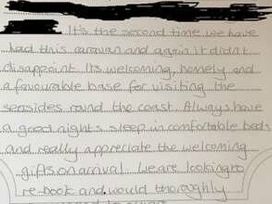 It's the second time we have
had this caravan and again it didnt
disappoint. Its welcoming, homely and
a favourable base for visiting the
seasides round the coast. Always have
a good nights sleep in comfortable beds
and really appreciate the welcoming
gifts on arrival. We are looking to
re-book and would thoroughly